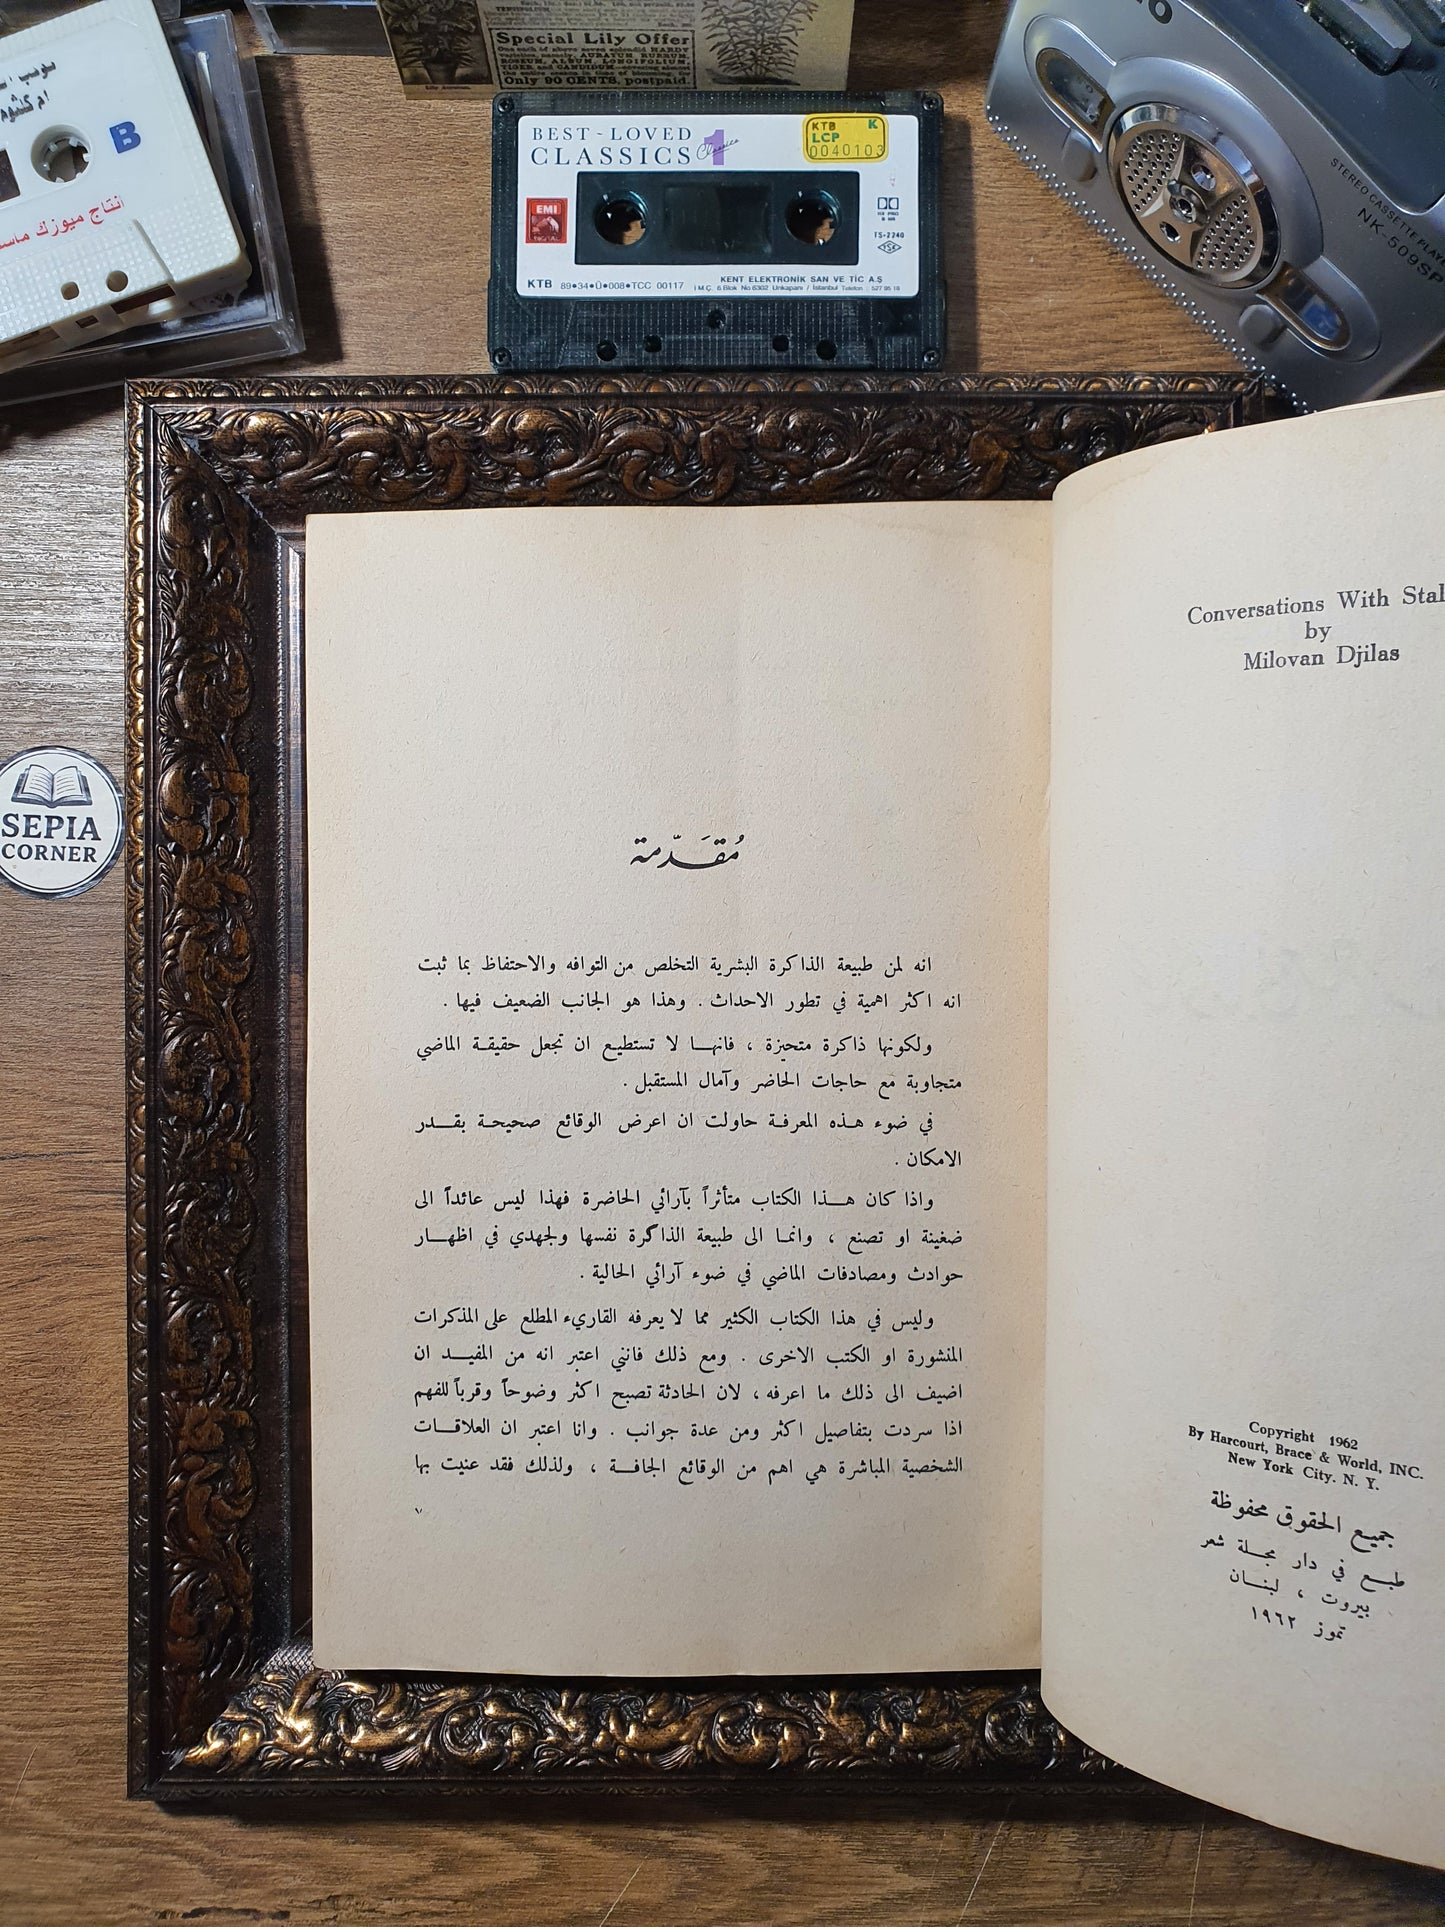 Special Lily Offer
Only 90 CENTS, postpaid.
BEST-LOVED
CLASSICS 1
Classics
KTB K
LCP
0040103
EMI
DIGITAL
TS-2240
TSE
KTB 89•34•Ü•008•TCC 00117
KENT ELEKTRONİK SAN VE TİC A.Ş
İ.M.Ç. 6 Blok No 6302 Unkapanı / İstanbul Telefon : 527 95 18
B
انتاج ميوزك
STEREO CASSETTE PLAYER
NK-509SP
SEPIA
CORNER
Conversations With Stal
by
Milovan Djilas
Copyright 1962
By Harcourt, Brace & World, INC.
New York City. N. Y.
جميع الحقوق محفوظة
طبع في دار مجلة شعر
بيروت ، لبنان
تموز ١٩٦٢
مُقَدّمة
انه لمن طبيعة الذاكرة البشرية التخلص من التوافه والاحتفاظ بما ثبت
انه اكثر اهمية في تطور الاحداث . وهذا هو الجانب الضعيف فيها .
ولكونها ذاكرة متحيزة ، فانها لا تستطيع ان تجعل حقيقة الماضي
متجاوبة مع حاجات الحاضر وآمال المستقبل .
في ضوء هذه المعرفة حاولت ان اعرض الوقائع صحيحة بقدر
الامكان .
واذا كان هذا الكتاب متأثراً بآرائي الحاضرة فهذا ليس عائداً الى
ضغينة او تصنع ، وانما الى طبيعة الذاكرة نفسها ولجهدي في اظهار
حوادث ومصادفات الماضي في ضوء آرائي الحالية .
وليس في هذا الكتاب الكثير مما لا يعرفه القاريء المطلع على المذكرات
المنشورة او الكتب الاخرى . ومع ذلك فانني اعتبر انه من المفيد ان
اضيف الى ذلك ما اعرفه ، لان الحادثة تصبح اكثر وضوحاً وقرباً للفهم
اذا سردت بتفاصيل اكثر ومن عدة جوانب . وانا اعتبر ان العلاقات
الشخصية المباشرة هي اهم من الوقائع الجافة ، ولذلك فقد عنيت بها
٧